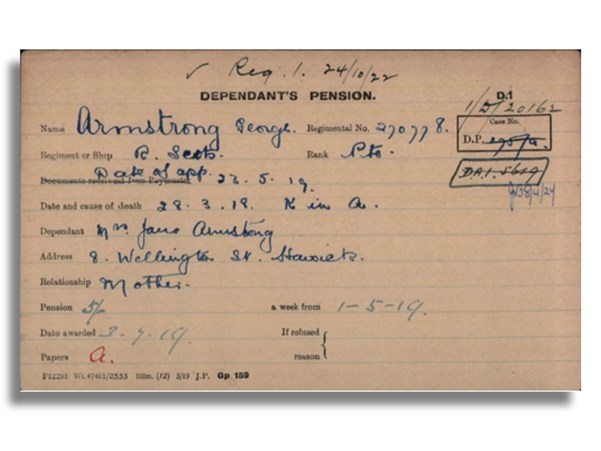 ✓ Reg. 1. 24/10/22
DEPENDANT'S PENSION.
D.1
1/D/20162
Name Armstrong George. Regimental No. 270778.
Case No.
D.P.
Regiment or Ship R. Scots. Rank Pte.
D.A.1. 5619
Documents received from Paymaster
Date of app. 23.5.19.
Date and cause of death 28.3.18. K in A.
Dependant Mrs Jane Armstrong
Address 8. Wellington St. Hawick.
Relationship Mother.
Pension 5/- a week from 1-5-19.
Date awarded 3-7-19. If refused
Papers A. reason
F12293 Wt.47401/2533 150m. (12) 5/19 J.P. Gp. 159